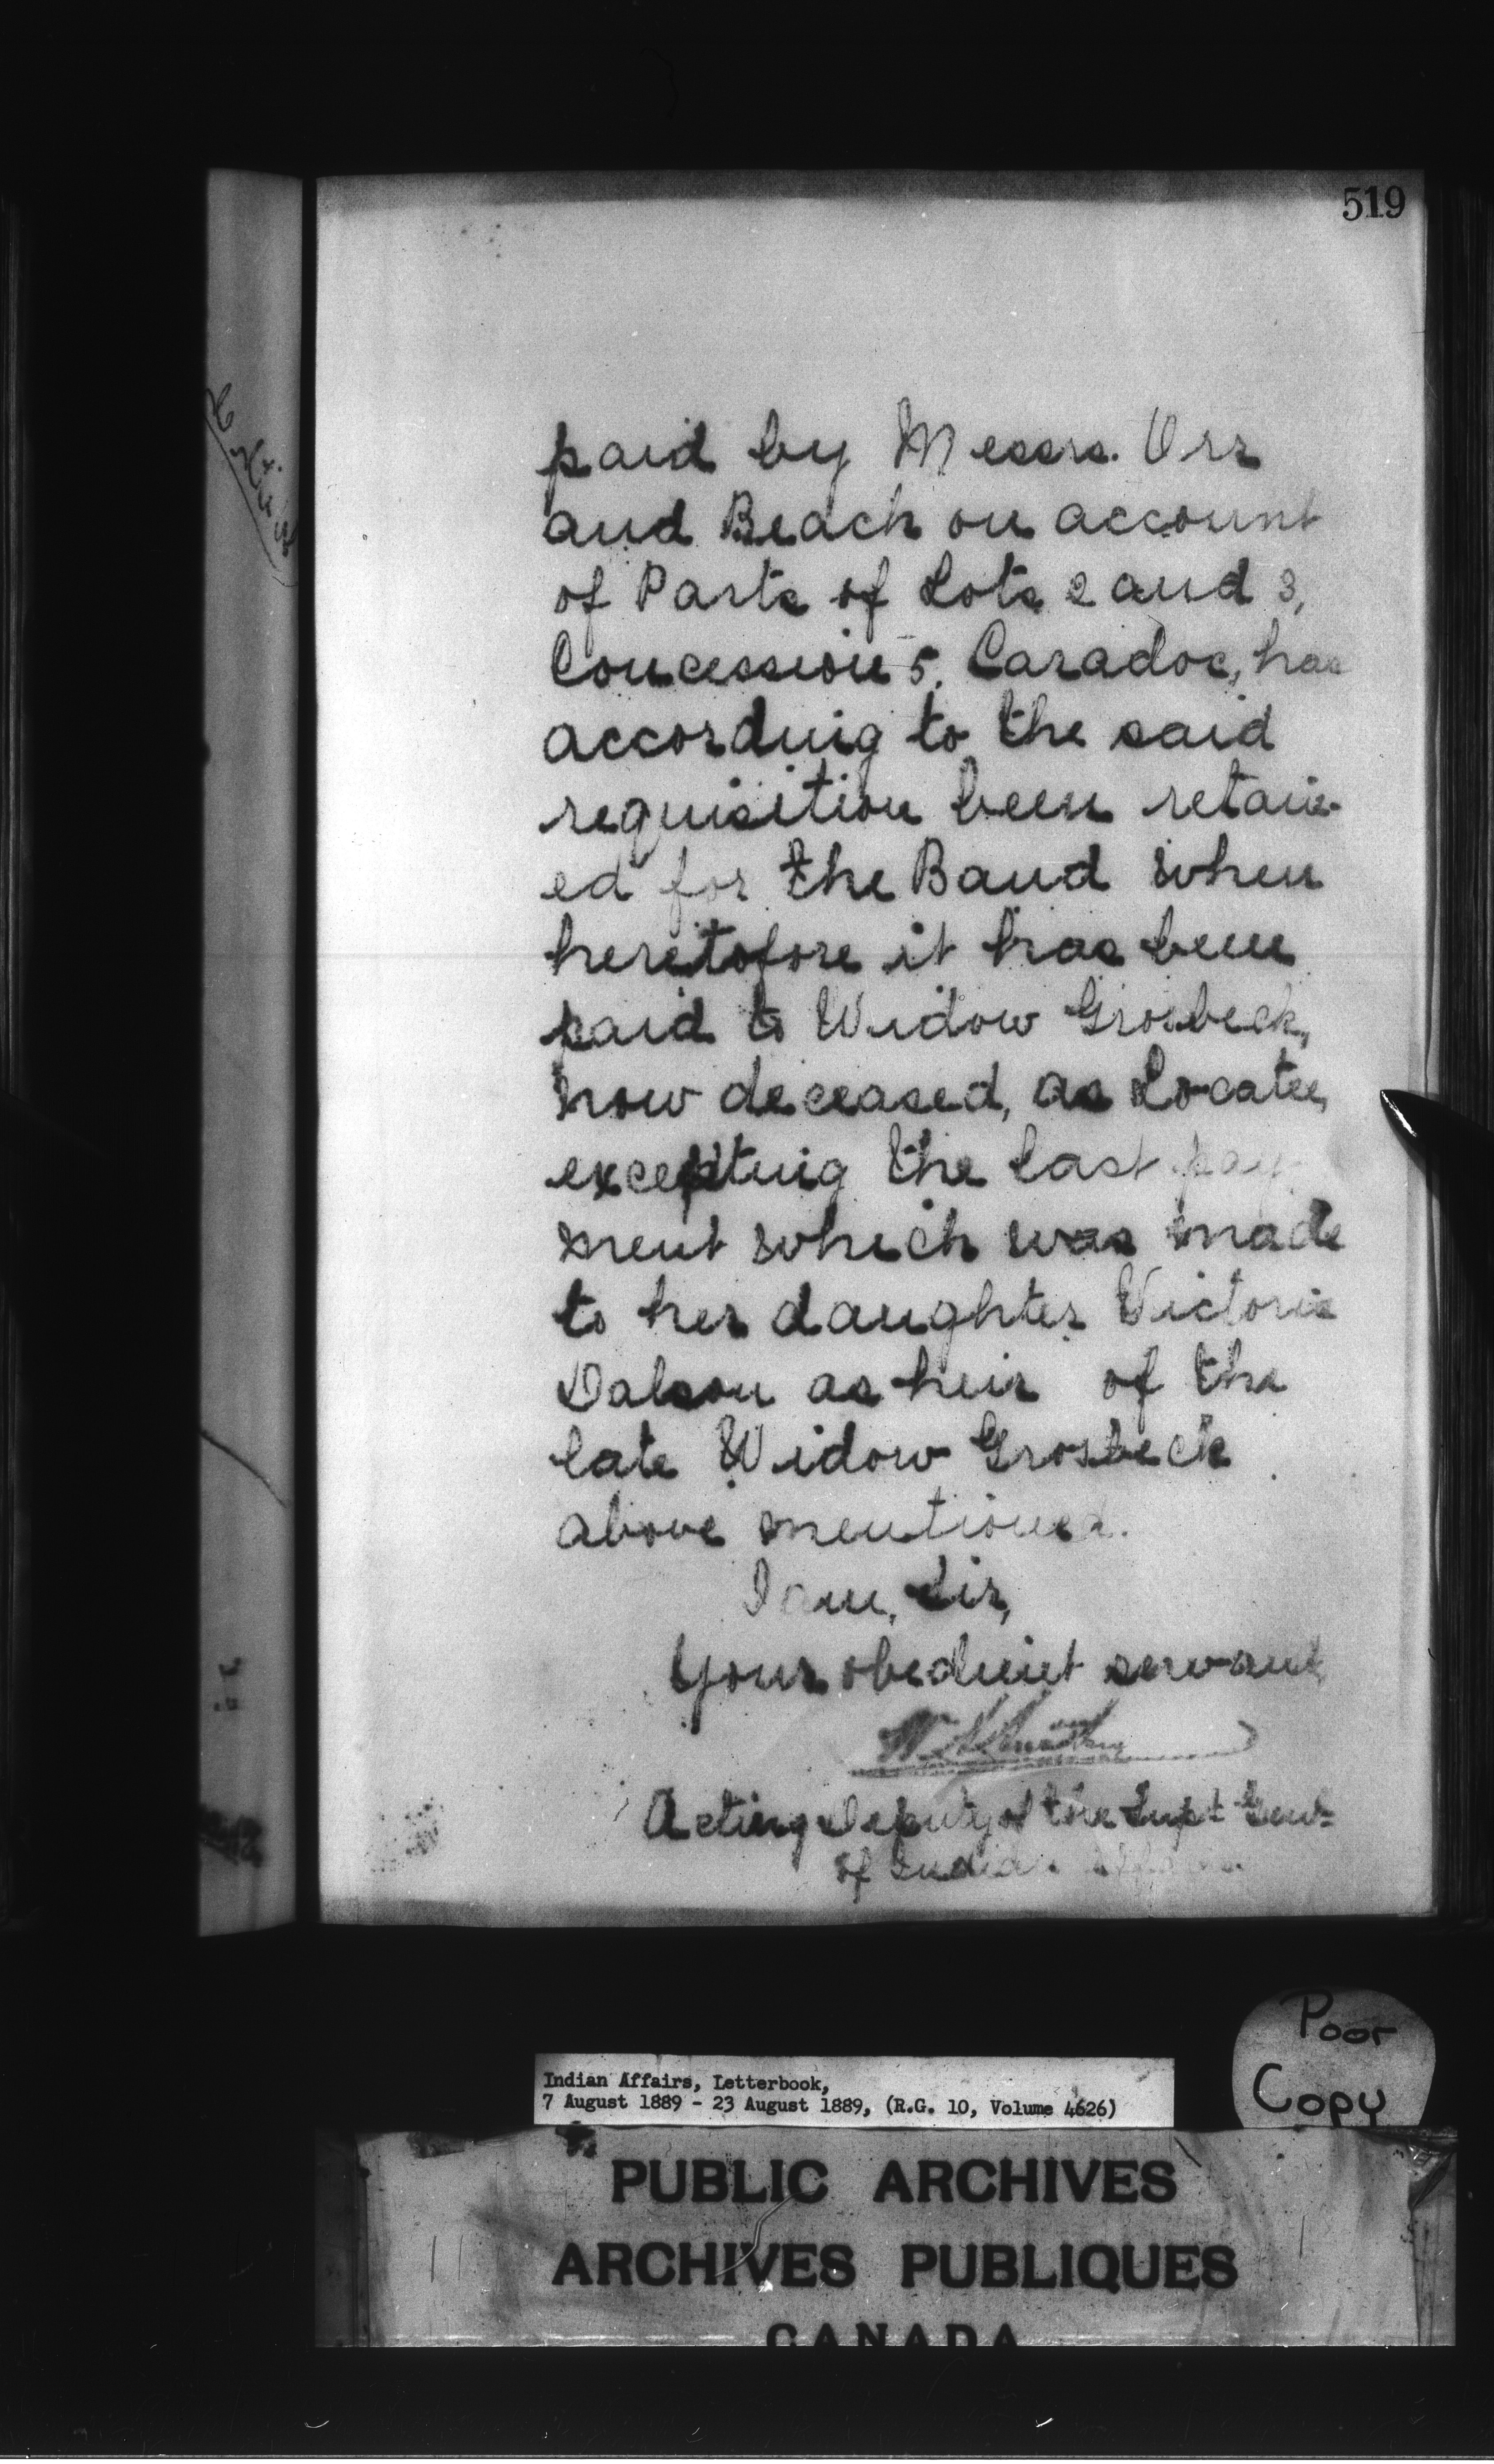 519
paid by Messrs. Orr
and Beach on account
of Parts of Lots 2 and 3,
Concession 5, Caradoc, has
according to the said
requisition been retain-
ed for the Band when
heretofore it has been
paid to Widow Grosbeck,
now deceased, as Locatee,
excepting the last pay
ment which was made
to her daughter Victoria
Dalson as heir of the
late Widow Grosbeck
above mentioned.
I am, Sir,
Your obedient servant
Acting Deputy of the Supt Genl
of Indian Affairs
Poor
Copy
Indian Affairs, Letterbook,
7 August 1889 - 23 August 1889, (R.G. 10, Volume 4626)
PUBLIC ARCHIVES
ARCHIVES PUBLIQUES
CANADA